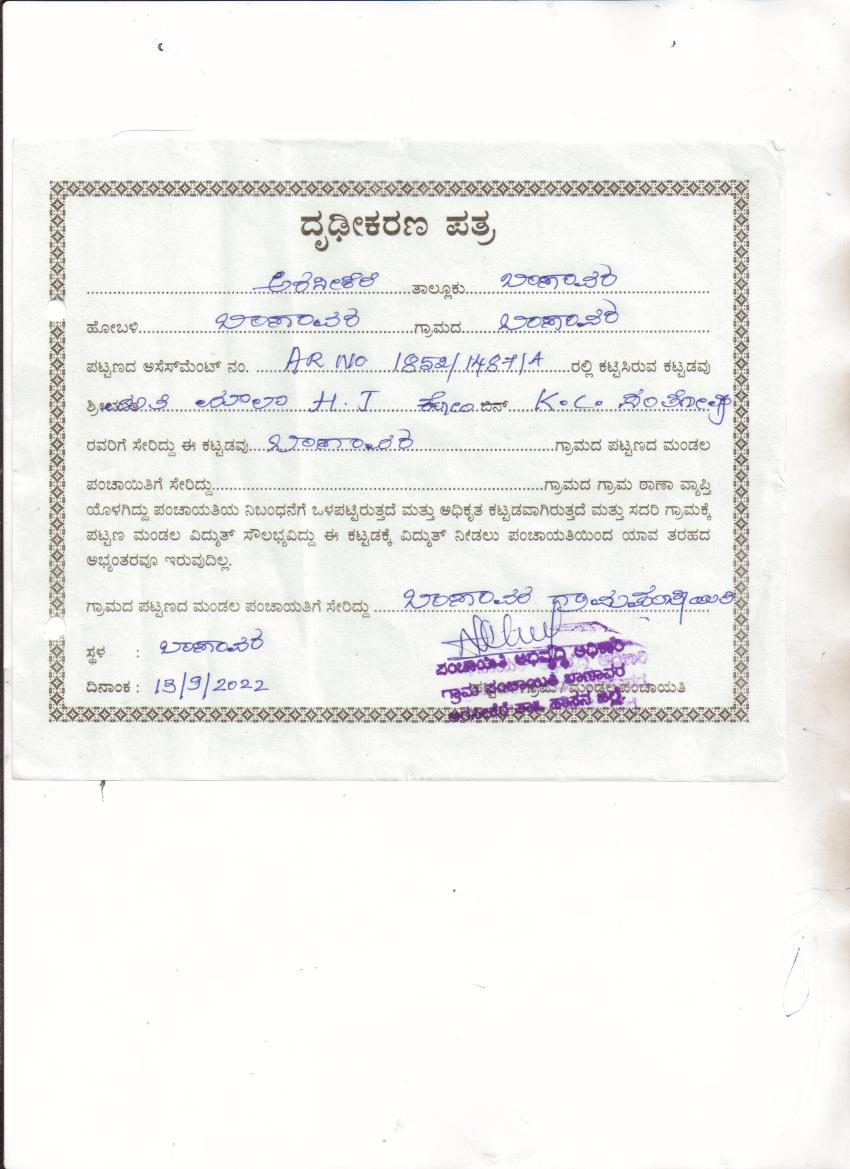 ದೃಢೀಕರಣ ಪತ್ರ
ಅರಸೀಕೆರೆ ತಾಲ್ಲೂಕು ಬಾಣಾವರ
ಹೋಬಳಿ ಬಾಣಾವರ ಗ್ರಾಮದ ಬಾಣಾವರ
ಪಟ್ಟಣದ ಅಸೆಸ್‌ಮೆಂಟ್ ನಂ. AR NO 1852/1487/A ರಲ್ಲಿ ಕಟ್ಟಿಸಿರುವ ಕಟ್ಟಡವು
H.J ಕೋಂ ಬಿನ್ K.C. ಸಂತೋಷ್
ರವರಿಗೆ ಸೇರಿದ್ದು ಈ ಕಟ್ಟಡವು ಬಾಣಾವರ ಗ್ರಾಮದ ಪಟ್ಟಣದ ಮಂಡಲ
ಪಂಚಾಯಿತಿಗೆ ಸೇರಿದ್ದು ಗ್ರಾಮದ ಗ್ರಾಮ ಠಾಣಾ ವ್ಯಾಪ್ತಿ
ಯೊಳಗಿದ್ದು ಪಂಚಾಯಿತಿಯ ನಿಬಂಧನೆಗೆ ಒಳಪಟ್ಟಿರುತ್ತದೆ ಮತ್ತು ಅಧಿಕೃತ ಕಟ್ಟಡವಾಗಿರುತ್ತದೆ ಮತ್ತು ಸದರಿ ಗ್ರಾಮಕ್ಕೆ
ಪಟ್ಟಣ ಮಂಡಲ ವಿದ್ಯುತ್ ಸೌಲಭ್ಯವಿದ್ದು ಈ ಕಟ್ಟಡಕ್ಕೆ ವಿದ್ಯುತ್ ನೀಡಲು ಪಂಚಾಯಿತಿಯಿಂದ ಯಾವ ತರಹದ
ಅಭ್ಯಂತರವೂ ಇರುವುದಿಲ್ಲ.
ಗ್ರಾಮದ ಪಟ್ಟಣದ ಮಂಡಲ ಪಂಚಾಯತಿಗೆ ಸೇರಿದ್ದು ಬಾಣಾವರ ಗ್ರಾಮಪಂಚಾಯಿತಿ
ಸ್ಥಳ : ಬಾಣಾವರ
ಪಂಚಾಯಿತಿ ಅಭಿವೃದ್ಧಿ ಅಧಿಕಾರಿ
ಗ್ರಾಮ ಪಂಚಾಯಿತಿ ಬಾಣಾವರ
ದಿನಾಂಕ : 13/9/2022 ಗ್ರಾಮ / ಮಂಡಲ ಪಂಚಾಯತಿ
ಅರಸೀಕೆರೆ ತಾ. ಹಾಸನ ಜಿಲ್ಲೆ.